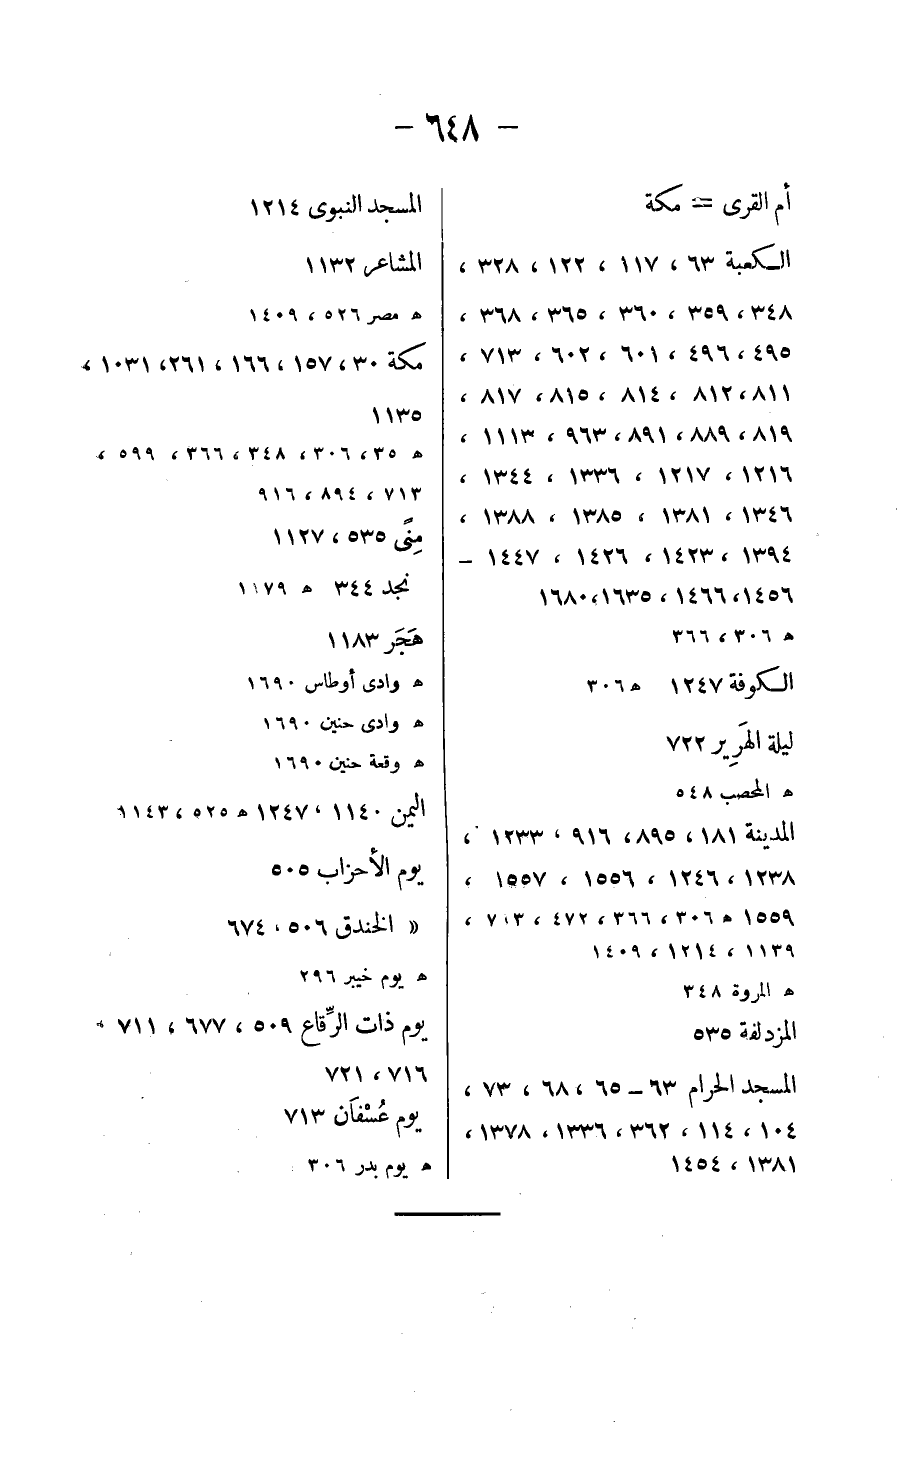 — ٦٤٨ —
أم القرى = مكة
الكعبة ٦٣ ، ١١٧ ، ١٢٢ ، ٣٢٨ ،
٣٤٨ ، ٣٥٩ ، ٣٦٠ ، ٣٦٥ ، ٣٦٨ ،
٤٩٥ ، ٤٩٦ ، ٦٠١ ، ٦٠٢ ، ٧١٣ ،
٨١١ ، ٨١٢ ، ٨١٤ ، ٨١٥ ، ٨١٧ ،
٨١٩ ، ٨٨٩ ، ٨٩١ ، ٩٦٣ ، ١١١٣ ،
١٢١٦ ، ١٢١٧ ، ١٣٣٦ ، ١٣٤٤ ،
١٣٤٦ ، ١٣٨١ ، ١٣٨٥ ، ١٣٨٨ ،
١٣٩٤ ، ١٤٢٣ ، ١٤٢٦ ، ١٤٤٧ –
١٤٥٦ ، ١٤٦٦ ، ١٦٣٥ ، ١٦٨٠
ھ ٣٠٦ ، ٣٦٦
الكوفة ١٢٤٧ ھ ٣٠٦
ليلة الهَرِير ٧٢٢
ھ المحصب ٥٤٨
المدينة ١٨١ ، ٨٩٥ ، ٩١٦ ، ١٢٣٣ ،
١٢٣٨ ، ١٢٤٦ ، ١٥٥٦ ، ١٥٥٧ ،
١٥٥٩ ھ ٣٠٦ ، ٣٦٦ ، ٤٧٢ ، ٧١٣ ،
١١٣٩ ، ١٢١٤ ، ١٤٠٩
ھ المروة ٣٤٨
المزدلفة ٥٣٥
المسجد الحرام ٦٣ – ٦٥ ، ٦٨ ، ٧٣ ،
١٠٤ ، ١١٤ ، ٣٦٢ ، ١٣٣٦ ، ١٣٧٨ ،
١٣٨١ ، ١٤٥٤
المسجد النبوى ١٢١٤
المشاعر ١١٣٢
ھ مصر ٥٢٦ ، ١٤٠٩
مكة ٣٠ ، ١٥٧ ، ١٦٦ ، ٢٦١ ، ١٠٣١ ،
١١٣٥
ھ ٣٥ ، ٣٠٦ ، ٣٤٨ ، ٣٦٦ ، ٥٩٩ ،
٧١٣ ، ٨٩٤ ، ٩١٦
مِنًى ٥٣٥ ، ١١٢٧
نجد ٣٤٤ ھ ١١٧٩
هَجَر ١١٨٣
ھ وادى أوطاس ١٦٩٠
ھ وادى حنين ١٦٩٠
ھ وقعة حنين ١٦٩٠
اليمن ١١٤٠ ، ١٢٤٧ ھ ٥٢٥ ، ١١٤٣
يوم الأحزاب ٥٠٥
» الخندق ٥٠٦ ، ٦٧٤
ھ يوم خيبر ٢٩٦
يوم ذات الرِّقاع ٥٠٩ ، ٦٧٧ ، ٧١١ ،
٧١٦ ، ٧٢١
يوم عُسْفَان ٧١٣
ھ يوم بدر ٣٠٦